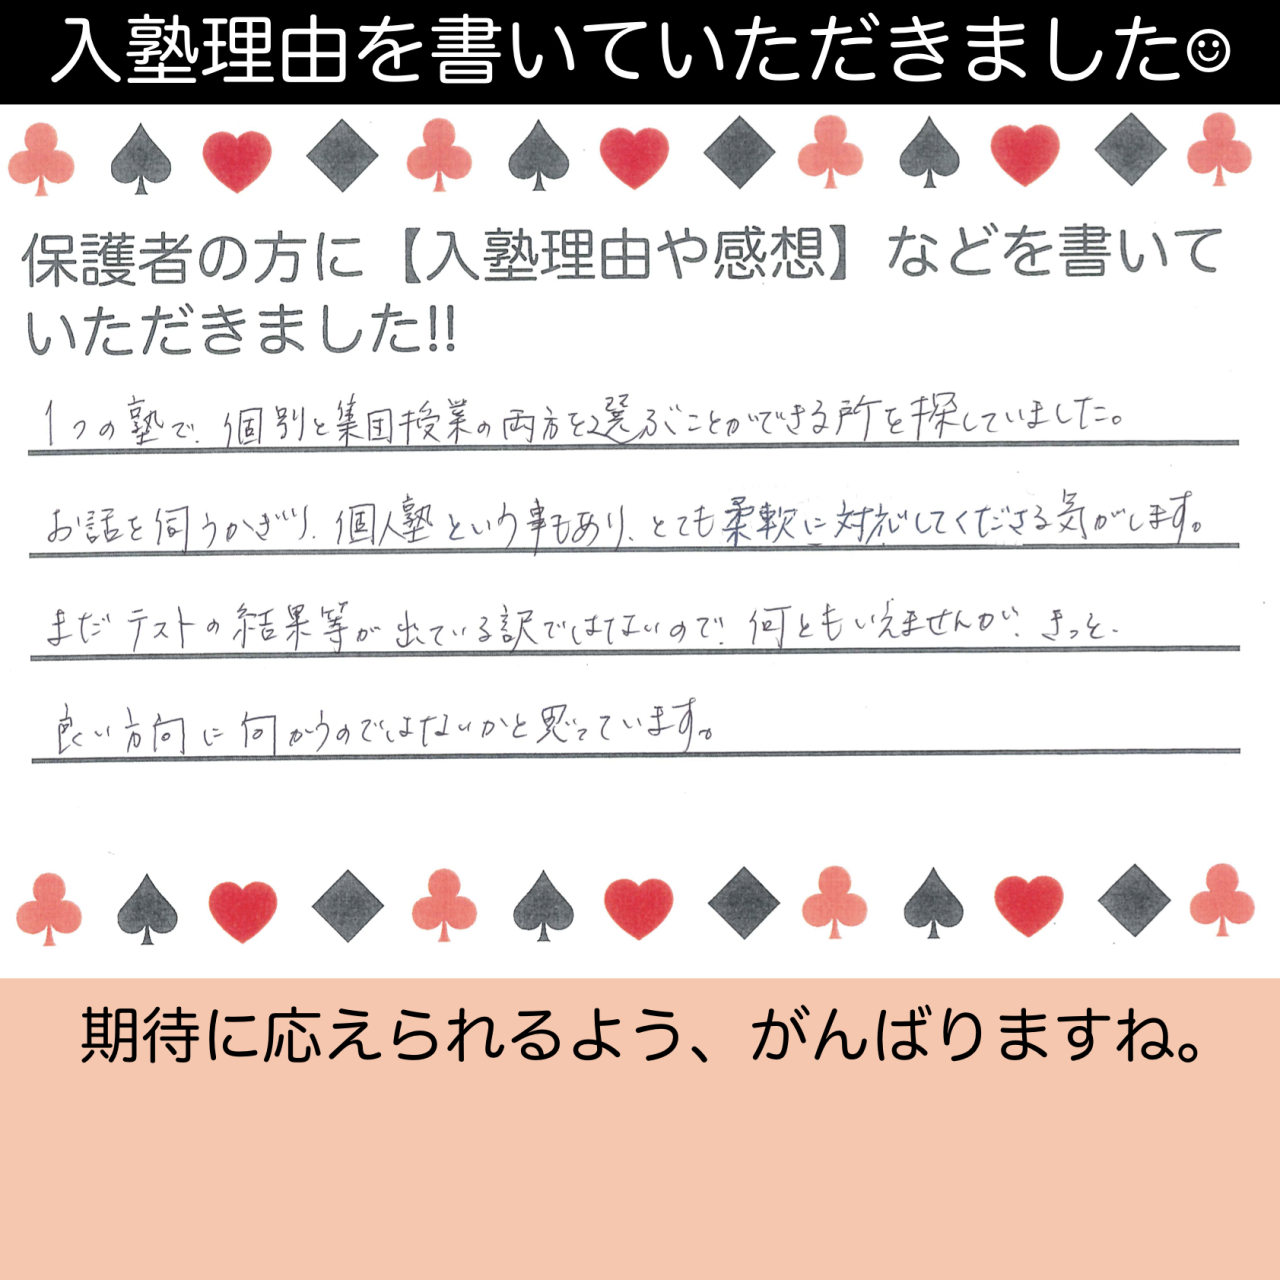 入塾理由を書いていただきました☺
保護者の方に【入塾理由や感想】などを書いて
いただきました!!
1つの塾で、個別と集団授業の両方を選ぶことができる所を探していました。
お話を伺うかぎり、個人塾という事もあり、とても柔軟に対応してくださる気がします。
まだテストの結果等が出ている訳ではないので、何ともいえませんが、きっと、
良い方向に向かうのではないかと思っています。
期待に応えられるよう、がんばりますね。